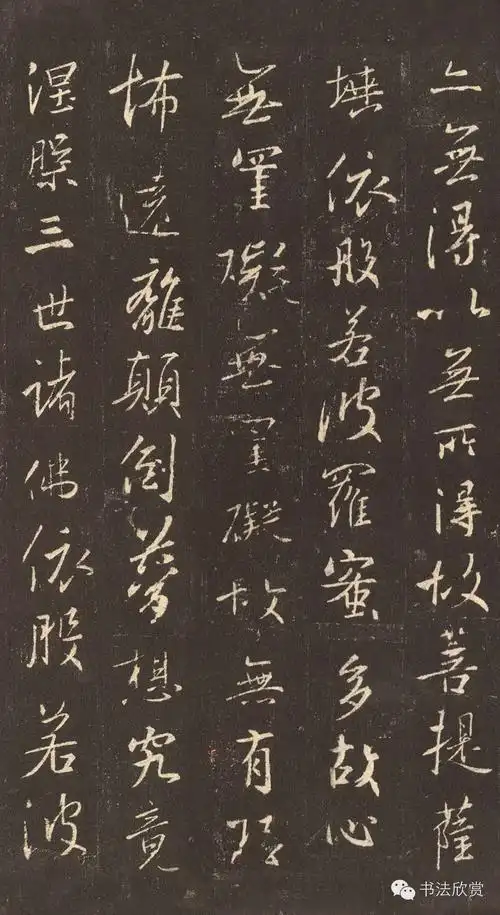 亦無得以無所得故菩提薩
埵依般若波羅蜜多故心
無罣礙無罣礙故無有恐
怖遠離顛倒夢想究竟
涅槃三世諸佛依般若波
书法欣赏